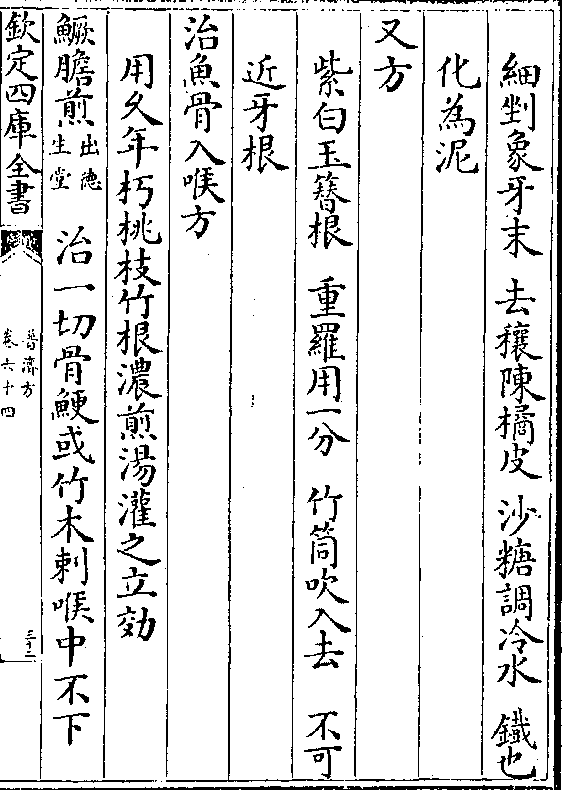 細剉象牙末 去穰陳橘皮 沙糖調冷水 鐵也
化為泥
又方
紫白玉簪根 重羅用一分 竹筒吹入去 不可
近牙根
治魚骨入喉方
用久年朽桃枝竹根濃煎湯灌之立効
鱖膽煎出德生堂 治一切骨鯁或竹木刺喉中不下
欽定四庫全書
普濟方
卷六十四
三十二